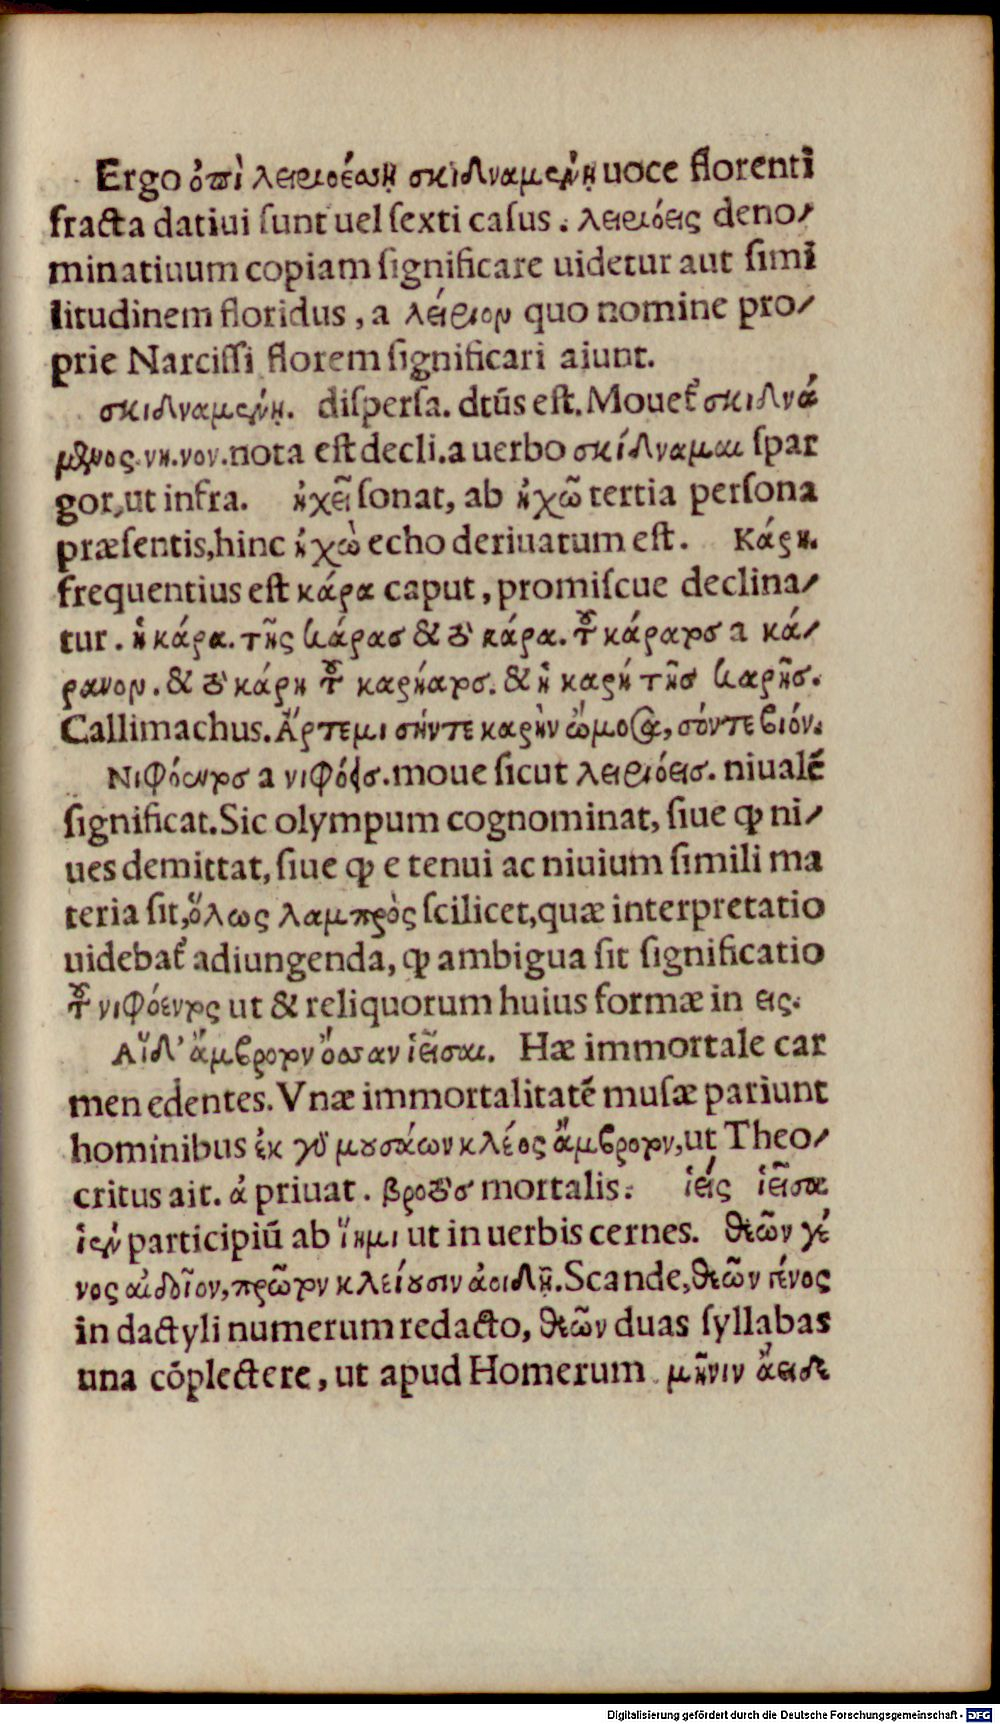 Ergo ὀπὶ λειριοέσσῃ σκιδναμένῃ uoce florenti
fracta datiui ſunt uel ſexti caſus. λειριόεις deno⸗
minatiuum copiam ſignificare uidetur aut ſimi
litudinem floridus, a λείριον quo nomine pro⸗
prie Narciſſi florem ſignificari aiunt.
σκιδναμένῃ. diſperſa. dtũs eſt. Mouet᷑ σκιδνά
μενος.νη.νον.nota eſt decli.a uerbo σκίδναμαι ſpar
gor,ut infra. ἠχεῖ ſonat, ab ἠχῶ tertia perſona
præſentis,hinc ἠχὼ echo deriuatum eſt. Κάρη.
frequentius eſt κάρα caput, promiſcue declina⸗
tur. ἡ κάρα. τῆς κάρας & τὸ κάρα. τοῦ κάρατος a κά⸗
ρανον. & τὸ κάρη τοῦ καρήατος. & ἡ καρή τῆς καρῆς.
Callimachus. Ἄρτεμι σήν τε καρὴν ὤμοσα, σόν τε βιόν.
Νιφόεντος a νιφόεις. moue ſicut λειριόεις. niualẽ
ſignificat. Sic olympum cognominat, ſiue ꝙ ni⸗
ues demittat, ſiue ꝙ e tenui ac niuium ſimili ma
teria ſit, ὅλως λαμπρὸς ſcilicet,quæ interpretatio
uidebat᷑ adiungenda, ꝙ ambigua ſit ſignificatio
τοῦ νιφόεντος ut & reliquorum huius formæ in εις.
Αἵδ' ἄμβροτον ὄσσαν ἱεῖσαι. Hæ immortale car
men edentes. Vnæ immortalitatẽ muſæ pariunt
hominibus ἐκ γὰ μουσάων κλέος ἄμβροτον,ut Theo⸗
critus ait. ἀ priuat. βροτὸς mortalis. ἱείς ἱεῖσα
ἱέν participiũ ab ἵημι ut in uerbis cernes. θεῶν γέ
νος αἰδοῖον, πρῶτον κλείουσιν ἀοιδῇ. Scande, θεῶν γένος
in dactyli numerum redacto, θεῶν duas ſyllabas
una cõplectere, ut apud Homerum μῆνιν ἄειδε
Digitalisierung gefördert durch die Deutsche Forschungsgemeinschaft - DFG